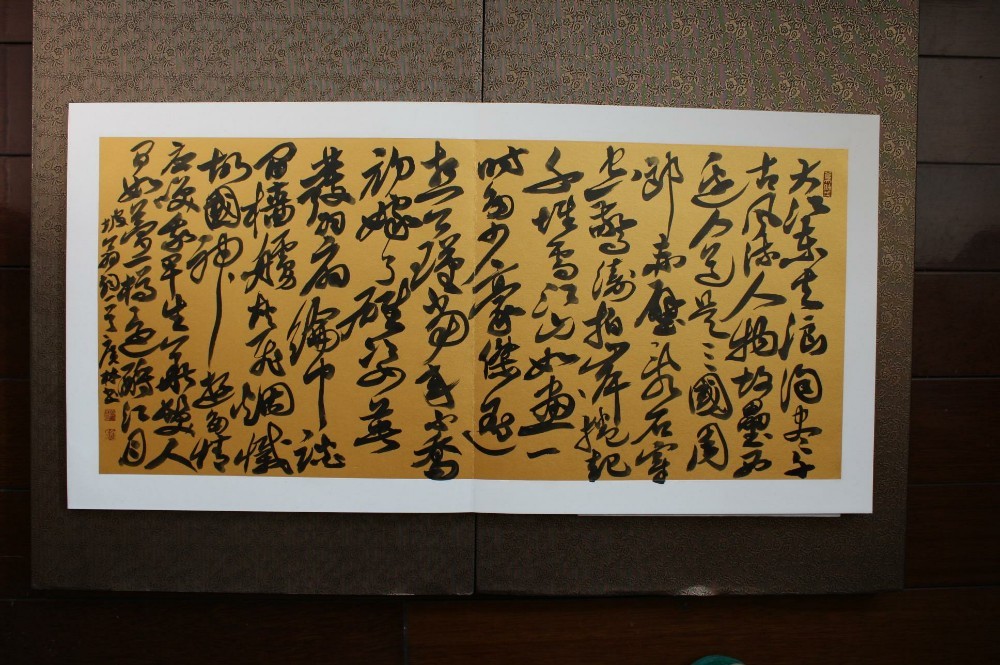 大江東去浪淘盡千
古風流人物故壘西
邊人道是三國周
郎赤壁亂石穿
空驚濤拍岸捲起
千堆雪江山如畫一
時多少豪傑遙
想公瑾當年小喬
初嫁了雄姿英
發羽扇綸巾談
間檣艣灰飛烟滅
故國神遊多情
應笑我早生華髮人
間如夢一樽還酹江月
坡翁詞一首